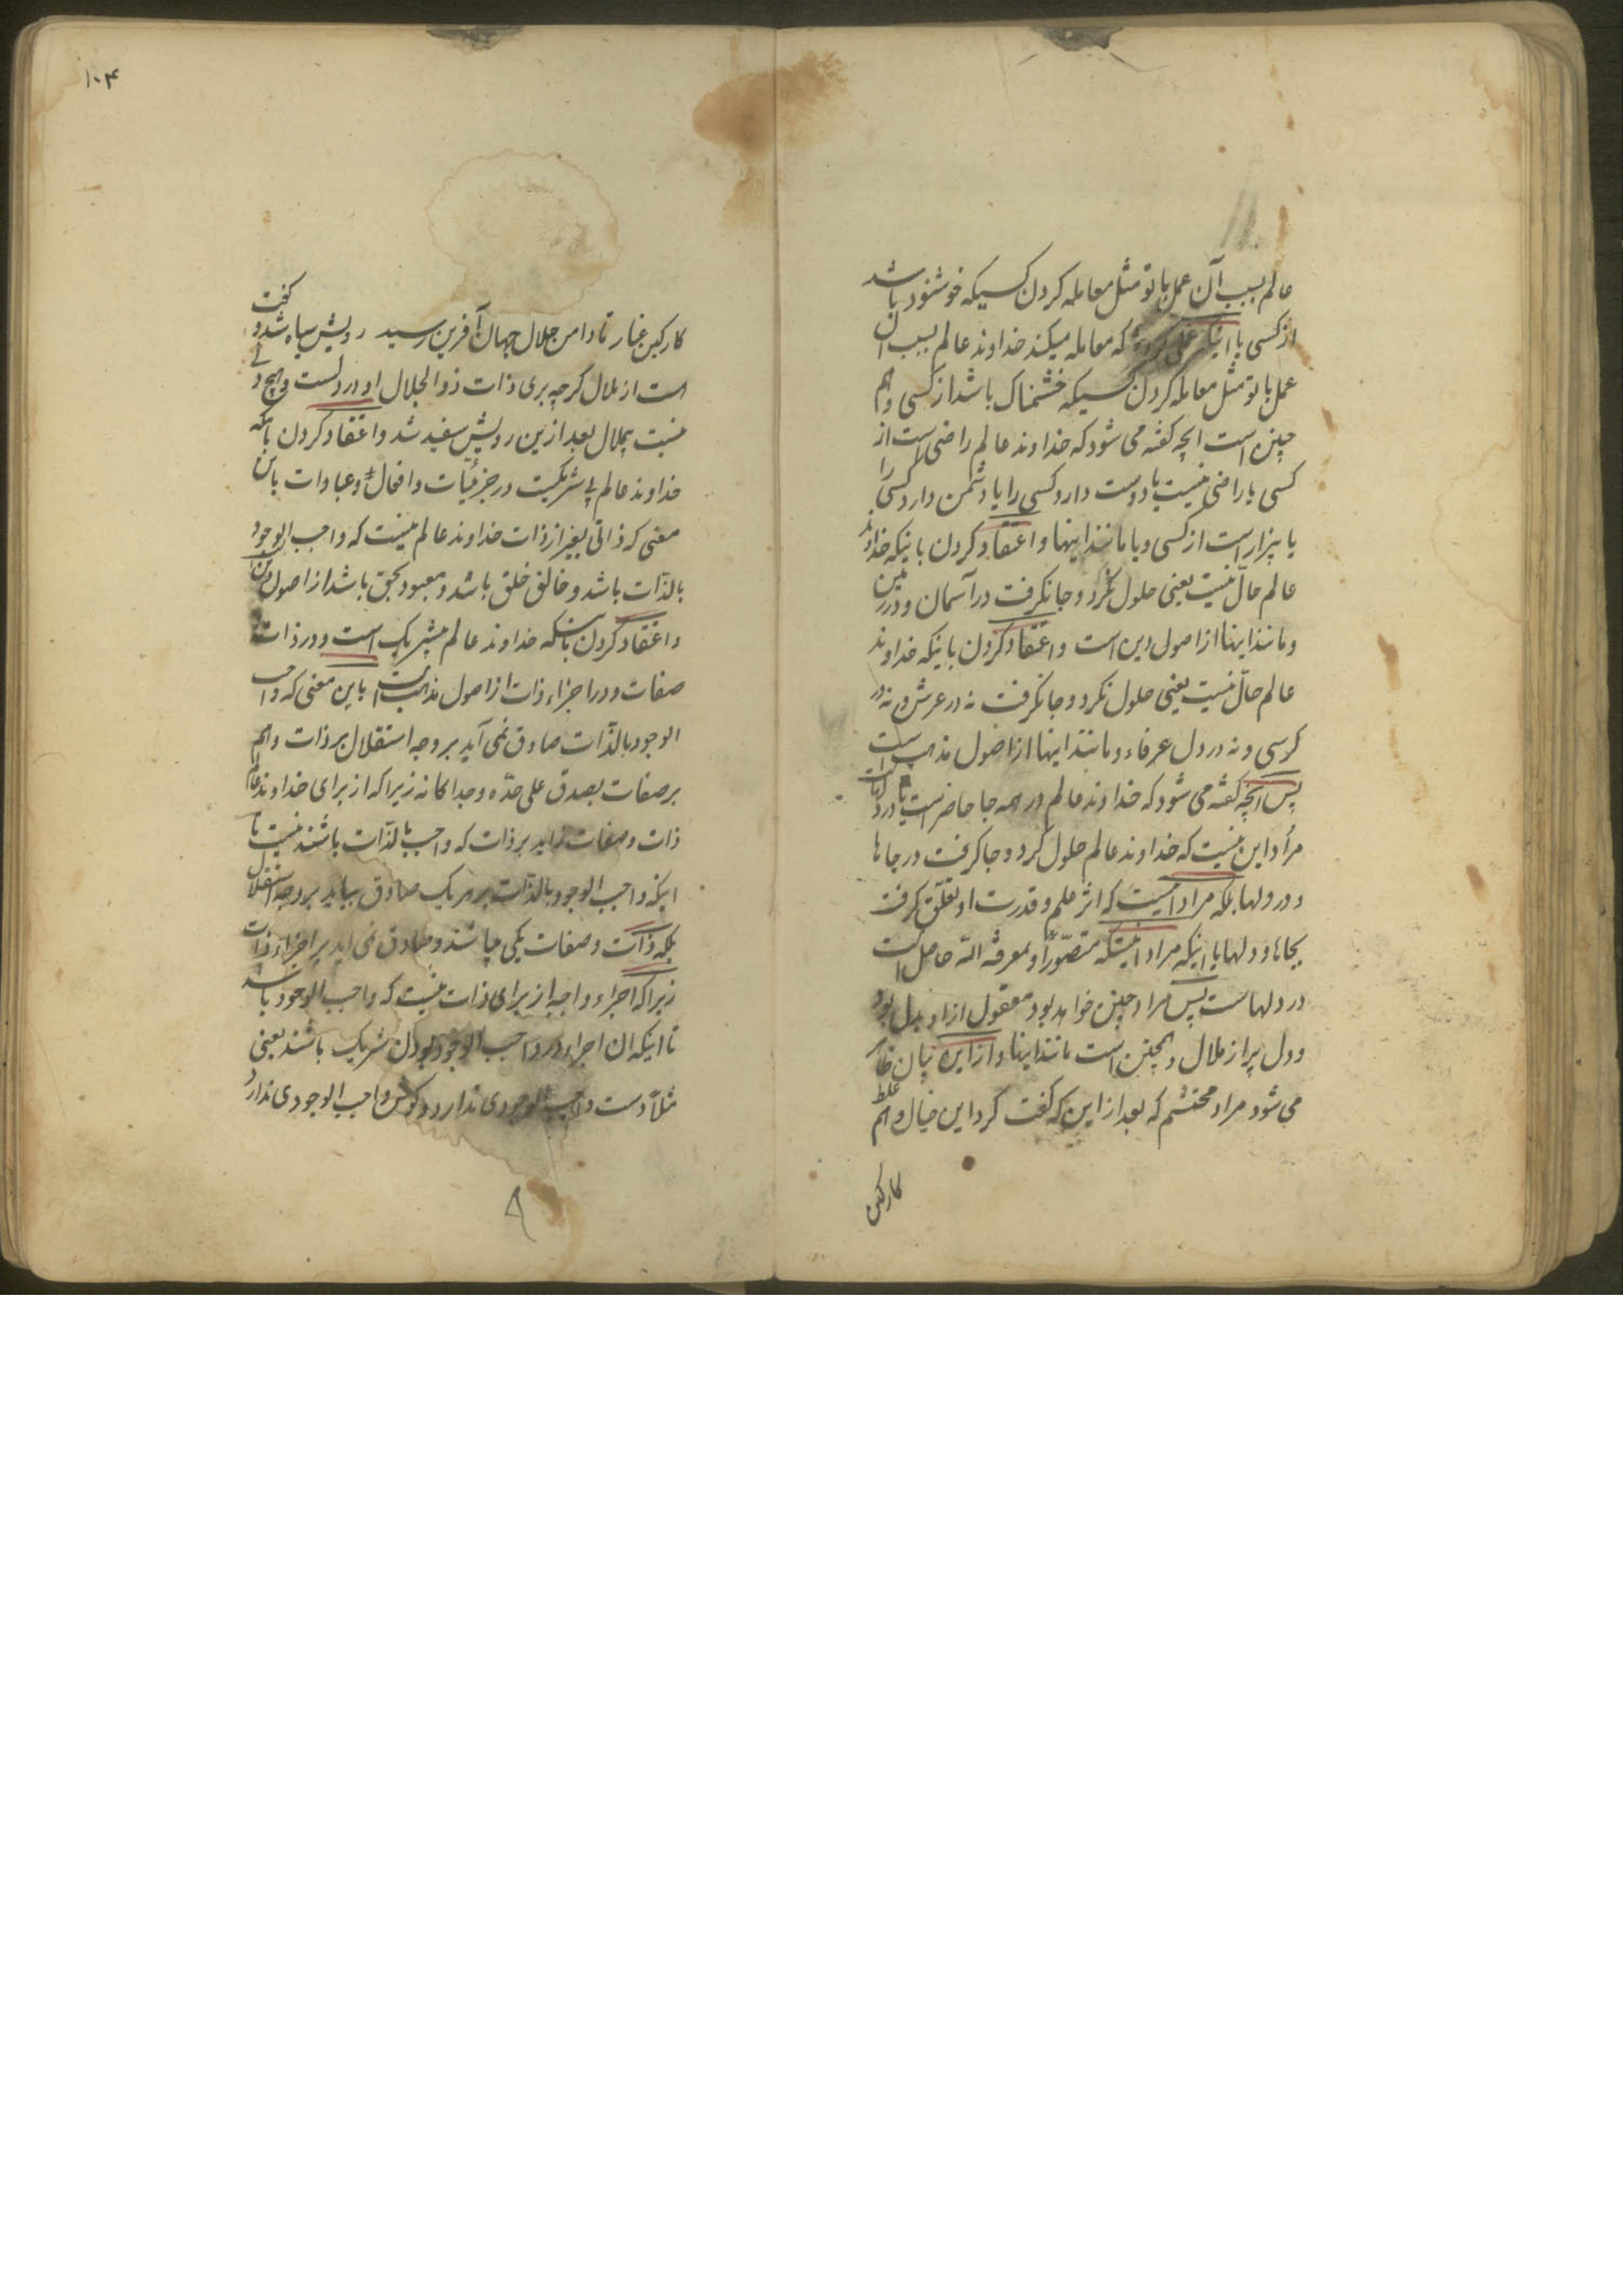 عالم بسبب آن عمل با تو مثل معامله کردن کسیکه خوشنود باشد
از کسی یا اینکه عملی کرده که معامله میکند خداوند عالم بسبب آن
عمل با تو مثل معامله کردن کسیکه خشمناک باشد از کسی و هم
چنین است انچه گفته می شود که خداوند عالم راضی است از
کسی یا راضی نیست یا دوست دارد کسی را یا دشمن دارد کسی را
یا بیزار است از کسی و یا مانند اینها و اعتقاد کردن باینکه خداوند
عالم حالّ نیست یعنی حلول نکرد و جا نگرفت در آسمان و در زمین
و مانند اینها از اصول دین است و اعتقاد کردن باینکه خداوند
عالم حالّ نیست یعنی حلول نکرد و جا نگرفت نه در عرش و نه در
کرسی و نه در دل عرفاء و مانند اینها از اصول مذهب است
پس انچه گفته می شود که خداوند عالم در همه جا حاضر است یا در دلهاست
مراد این نیست که خداوند عالم حلول کرد و جا گرفت در جاها
و در دلها بلکه مراد اینست که اثر علم و قدرت او تعلّق گرفت
بجاها و دلها یا اینکه مراد اینستکه متصوّر او بمعرفة الله حاصل است
در دلهاست پس مراد چنین خواهد بود معقول از او بدل بود
و دل پر از ملال و همچنین است مانند اینها و از این بیان ظاهر
می شود مراد محتشم که بعد از این که گفت کرد این خیال وهم غلط
کارکین
۱۰۴
کارکین غبار تا دامن جلال جهان آفرین رسید رویش سیاه شد و گفت
هست از ملال گرچه بری ذات ذوالجلال او در دلست و هیچ دلی
نیست بی‌ملال بعد ازین رویش سفید شد و اعتقاد کردن بانکه
خداوند عالم بی شریکست در جزئیات و افعال و عبادات باین
معنی که ذاتی بغیر از ذات خداوند عالم نیست که واجب الوجود
بالذّات باشد و خالق خلق باشد و معبود بحق باشد از اصول دین است
و اعتقاد کردن بانکه خداوند عالم بیشریک است و در ذات و
صفات و در اجزاء ذات از اصول مذهب است باین معنی که واجب
الوجود بالذّات صادق نمی آید بر وجه استقلال بر ذات و هم
بر صفات بصدق علی حدّه و جداگانه زیرا که از برای خداوند عالم
ذات و صفات زاید بر ذات که واجب بالذّات باشند نیست تا
اینکه واجب الوجود بالذّات بر هر یک صادق بیاید بر وجه استقلال
بلکه ذات و صفات یکی میباشند و صادق نمی اید بر اجزاء ذات
زیرا که اجزاء واجبه از برای ذات نیست که واجب الوجود باشد
تا اینکه ان اجزاء در واجب الوجود بودن شریک باشند یعنی
مثلاً دست واجب الوجودی ندارد و گوش واجب الوجودی ندارد